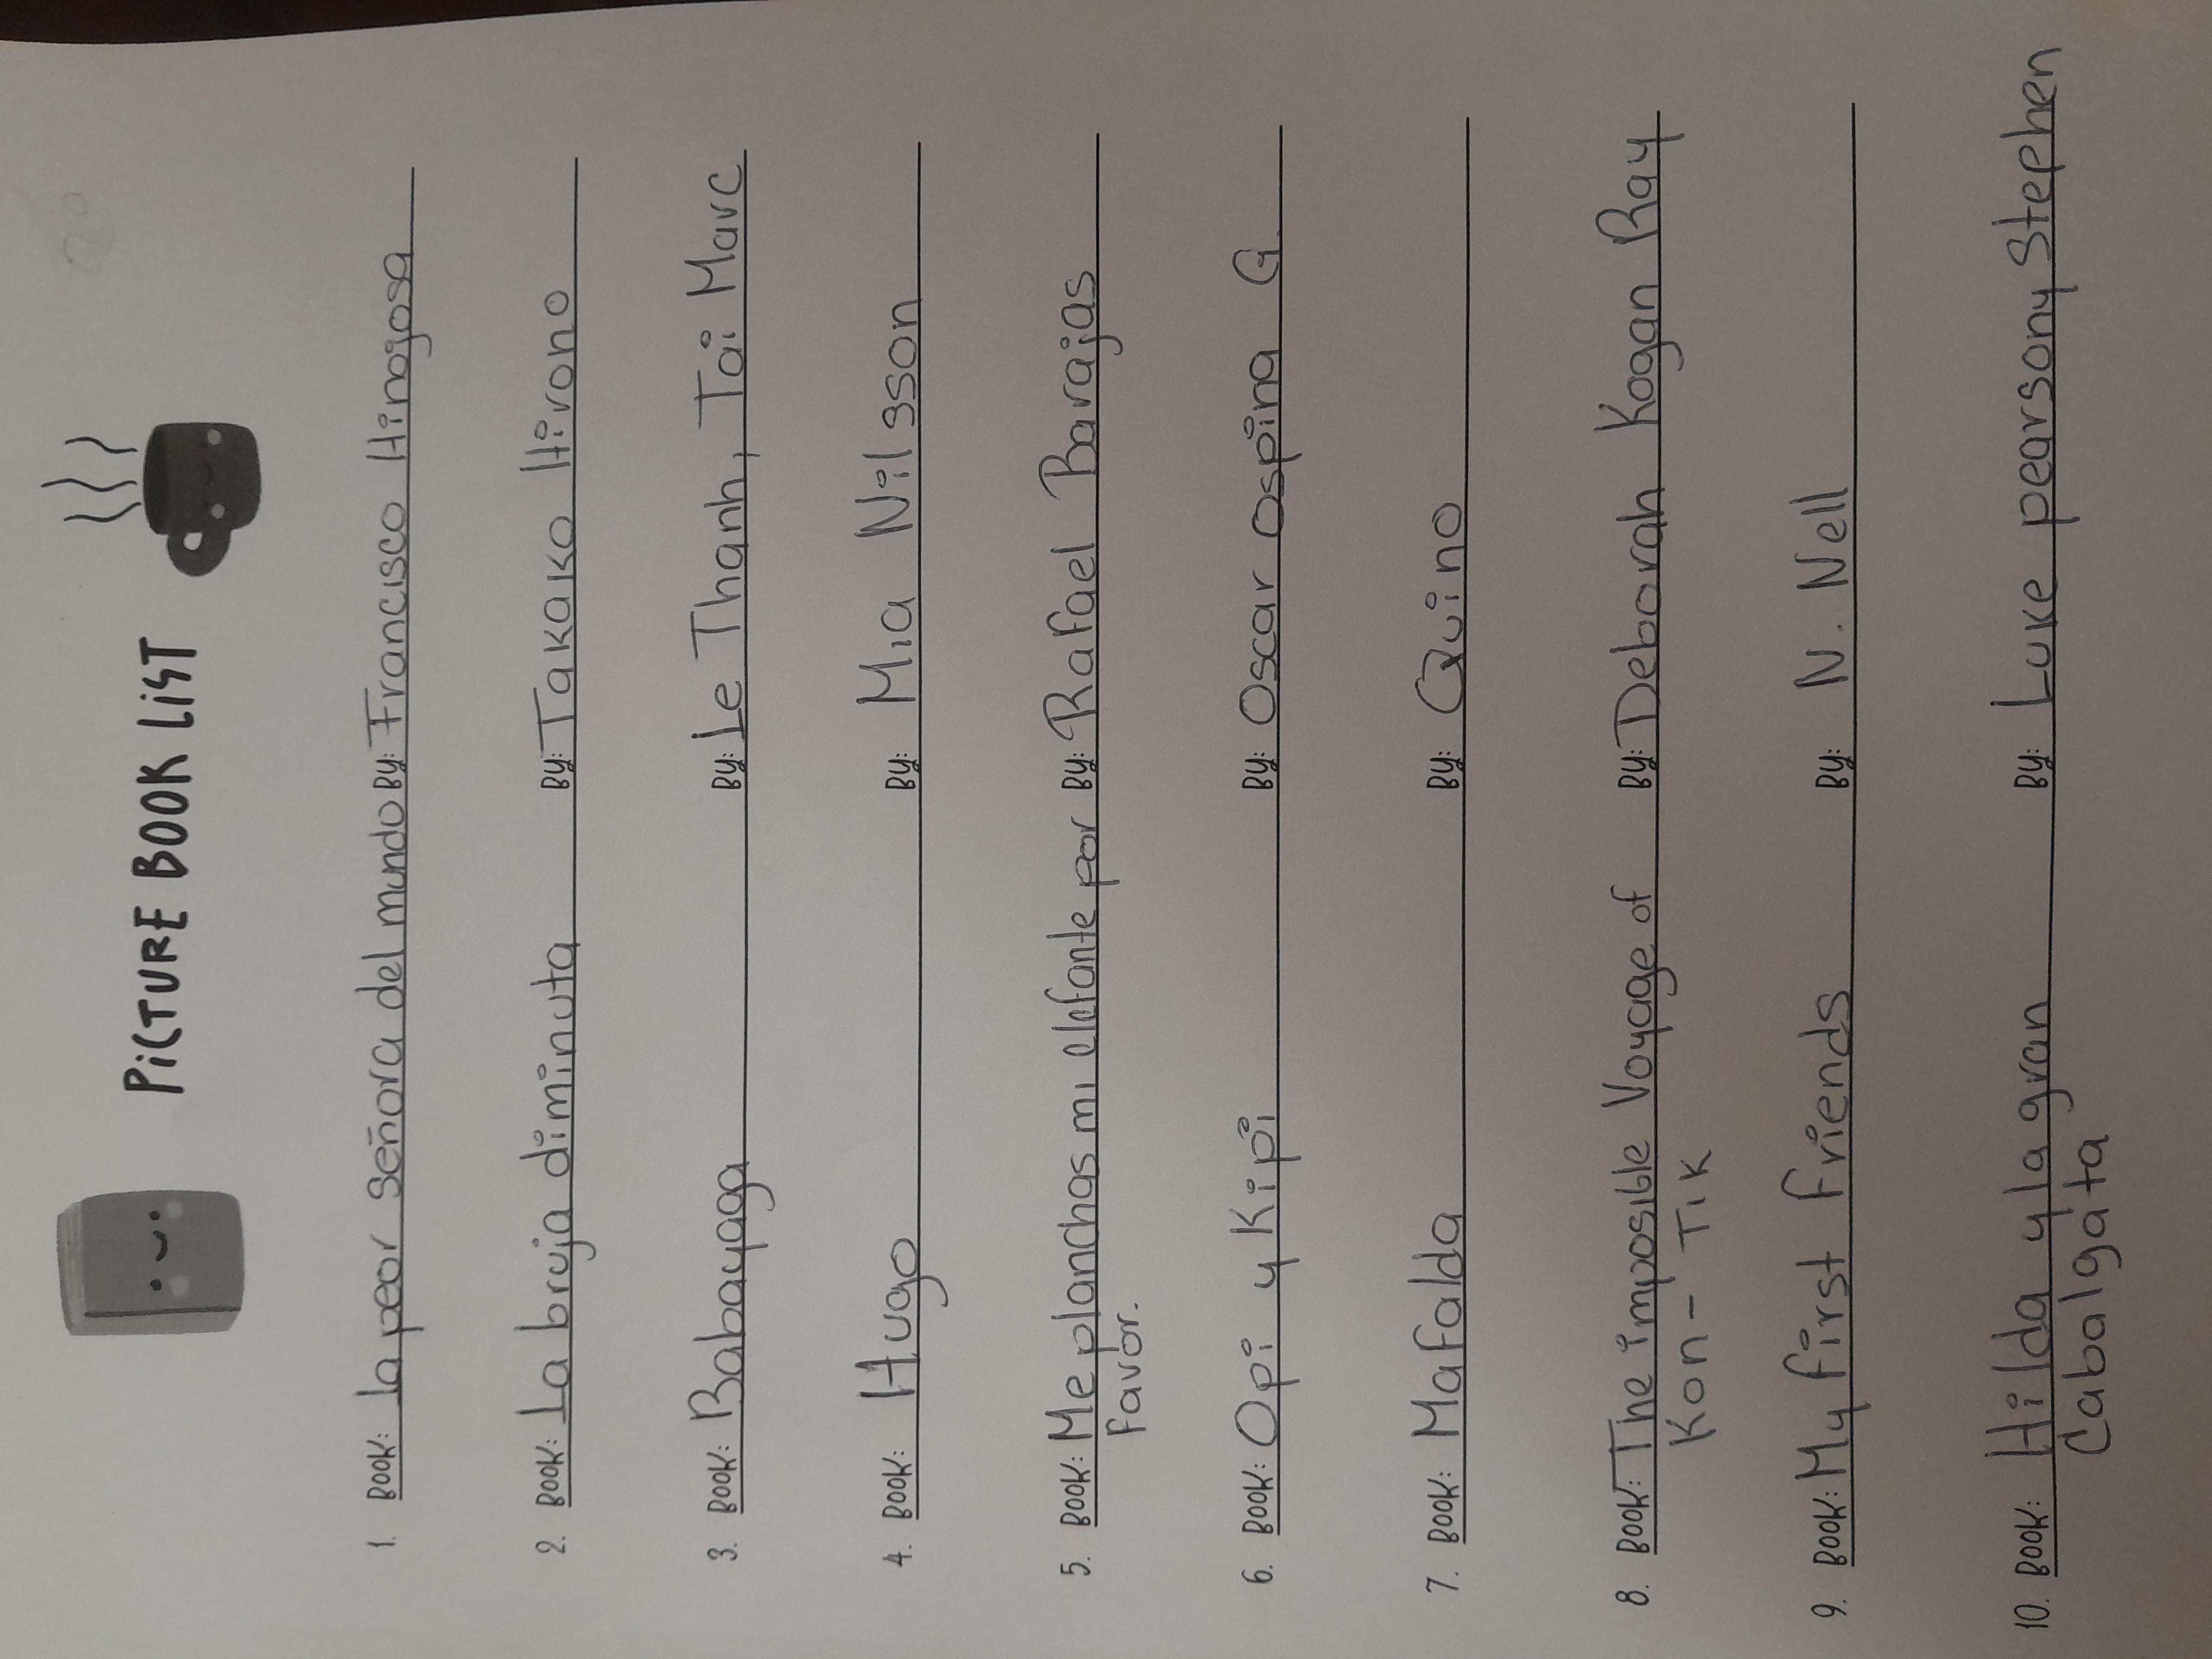 PICTURE BOOK LIST
1. BOOK: La peor Señora del mundo BY: Francisco Hinogosa
2. BOOK: La bruja diminuta BY: Takako Hirono
3. BOOK: Babayaga BY: Le Thanh, Tai Marc
4. BOOK: Hugo BY: Mia Nilsson
5. BOOK: Me planchas mi elefante por BY: Rafael Barajas
Favor.
6. BOOK: Opi y Kipi BY: Oscar Ospina G.
7. BOOK: Mafalda BY: Quino
8. BOOK: The imposible Voyage of BY: Deborah Kogan Ray
Kon-Tik
9. BOOK: My first friends BY: N. Nell
10. BOOK: Hilda y la gran BY: Luke pearson y Stephen
Cabalgata